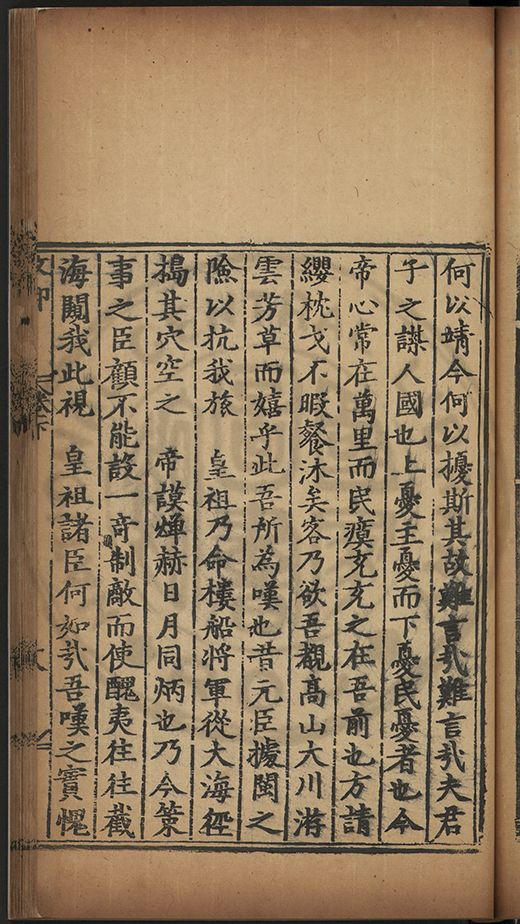 何以靖今何以擾斯其故難言哉難言哉夫君
子之謀人國也上憂主憂而下憂民憂者也今
帝心常在萬里而民瘼充充之在吾前也方請
纓枕戈不暇餐沐矣客乃欲吾覩高山大川游
雲芳草而嬉乎此吾所為嘆也昔元臣據閩之
險以抗我旅　皇祖乃命樓船將軍從大海徑
搗其穴空之　帝謨燀赫日月同炳也乃今策
事之臣顧不能設一奇制敵而使醜夷往往截
海闚我此視　皇祖諸臣何如哉吾嘆之實愧
卷下